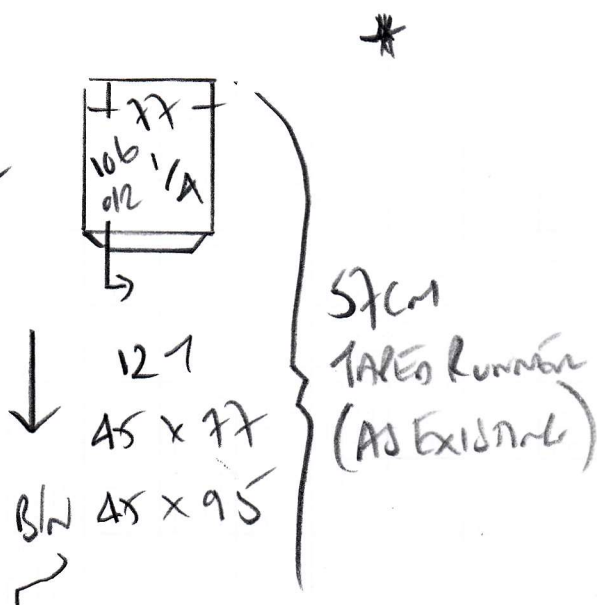 77
106 1/A
012
121
45 x 77
B/N 45 x 95
57CM
TAPED RUNNER
(AS EXISTING)